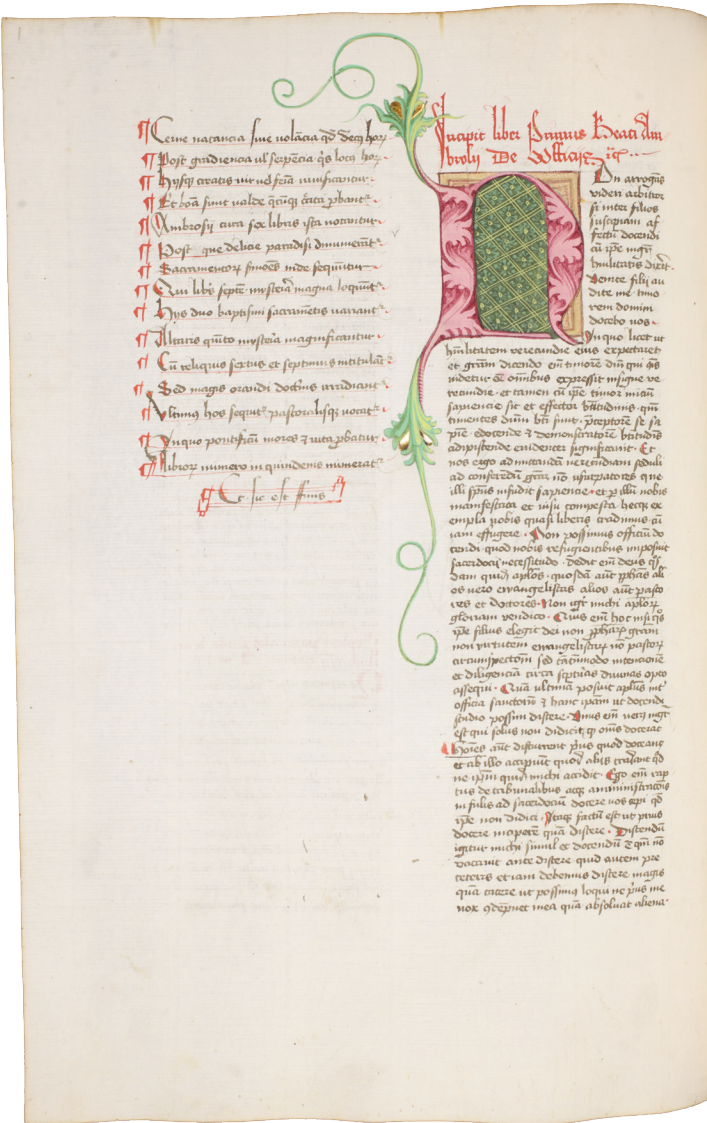 ¶ Cerne natancia siue volãcia qd̃ decꝫ hoꝝ
¶ Post gradiencia ul serpẽcia qͥs locꝫ hoꝝ
¶ Hysqꝫ creatis vir uel fẽīa viuificantur
¶ Et boña sunt valde cũcta ꝓbant᷑
¶ Ambrosij cura sex libris ista notantur
¶ Post que delicie paradisi dinumerãt᷑
¶ Sacramentoꝝ inde sequũtur
¶ Qui libris septẽ mysteria magna loquũt᷑
¶ Hys duo baptismi sacramẽtis
¶ Altaris qũito mysteria magnificantur
¶ Cũ reliquis sextus et septimus intitulãt᷑
¶ Sed magis orandi irradiant᷑
¶ Ultimus hos sequit᷑ pastoralisqꝫ vocat᷑
¶ Inquo pontificũ mores ⁊ vita ꝓbatur
¶ Librorꝫ numero in quindenis numerat᷑
¶ Et sic est finis
Incipit liber Primus Beati Am
brosij De Officijs
Non arrogãs
videri arbitror
si inter filios
suscipiam af
fectũ docendi
cũ ip̃e mgr̃
humilitatis dixit
Venite filij au
dite me timo
rem domini
docebo vos.
Inquo licet ut
humilitatem verecundie eius expectaret
et gr̃am dicendo em̃ timorẽ dñi qui
videtur ẽẽ omĩbus expressit insigne ve
recundie. et tamen cũ ip̃e timor iniciũ
sapiencie sit et effector bt̃itudinis qm̃
timentes dñm bt̃i sunt. p̃ceptorẽ se sa
pñe edocende ⁊ demonstratorẽ bt̃itudĩs
adipiscende euidenter significauit. Et
nos ergo ad imitandã verecundiam seduli
ad conferedã grãm nõ usurpatores que
illi sp̃us infudit sapiencie. et ꝑ illũ nobis
manifestata et uisu comperta hecqꝫ ex
empla vobis quasi liberis tradimus cũ
iam effugere. Non possimus officiũ do
cendi quod nobis refugientibus imposuit
sacerdocij necessitudo. dedit em̃ deus qͦs
dam quidẽ apl̃os. quosdã aũt ꝓph̃as ali
os vero ewangelistas alios aũt pasto
res et doctores. Non igr̃ michi apl̃oꝝ
gloriam vendico. Quis em̃ hoc nisi qͦs
ip̃e filius elegit dei non ꝓph̃aꝝ grãm
non virtutem ewangelistaꝝ nõ pastoꝝ
circumspectom̃ sed tãtũmodo intencionẽ
et diligenciã circa sc̃pturas diuinas opto
assequi. Quã ultimã posuit apl̃us int᷑
officia sanctorũ ⁊ hanc ip̃am ut docendi
studio possim discere. Unus em̃ verꝫ mgr̃
est qui solus non didicit qđ om̃s doceret
Hoĩes aũt discunt prius quod doceant
et ab illo accipiunt quod alijs tradant qđ
ne ip̃m quidẽ michi accidit. Ego em̃ rap
tus de tribunalibus atqꝫ amministracõis
infulis ad sacerdocium docere vos cepi qđ
ip̃e non didici. Itaqꝫ factũ est ut prius
docere inciperẽ quã discere. Discendũ
igitur michi simul et docendũ ẽ qm̃ nõ
vacauit ante discere quid autem pre
ceteris etiam debemus discere magis
quã tacere ut possimus loqui ne prius me
vox ꝯdẽpnet mea quã absoluat aliena.